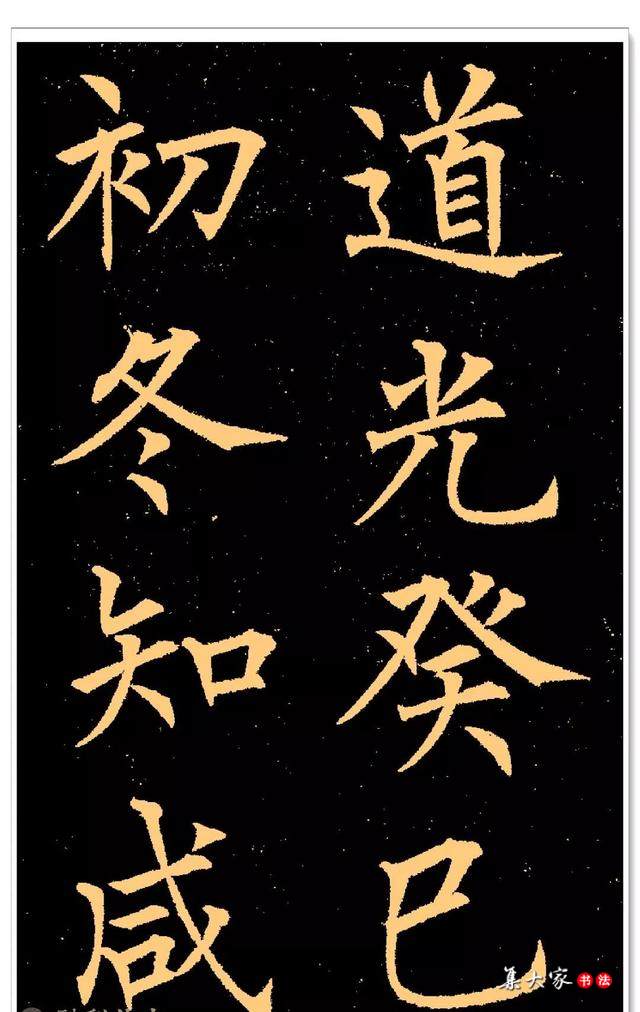 道光癸巳
初冬知咸
集大家书法